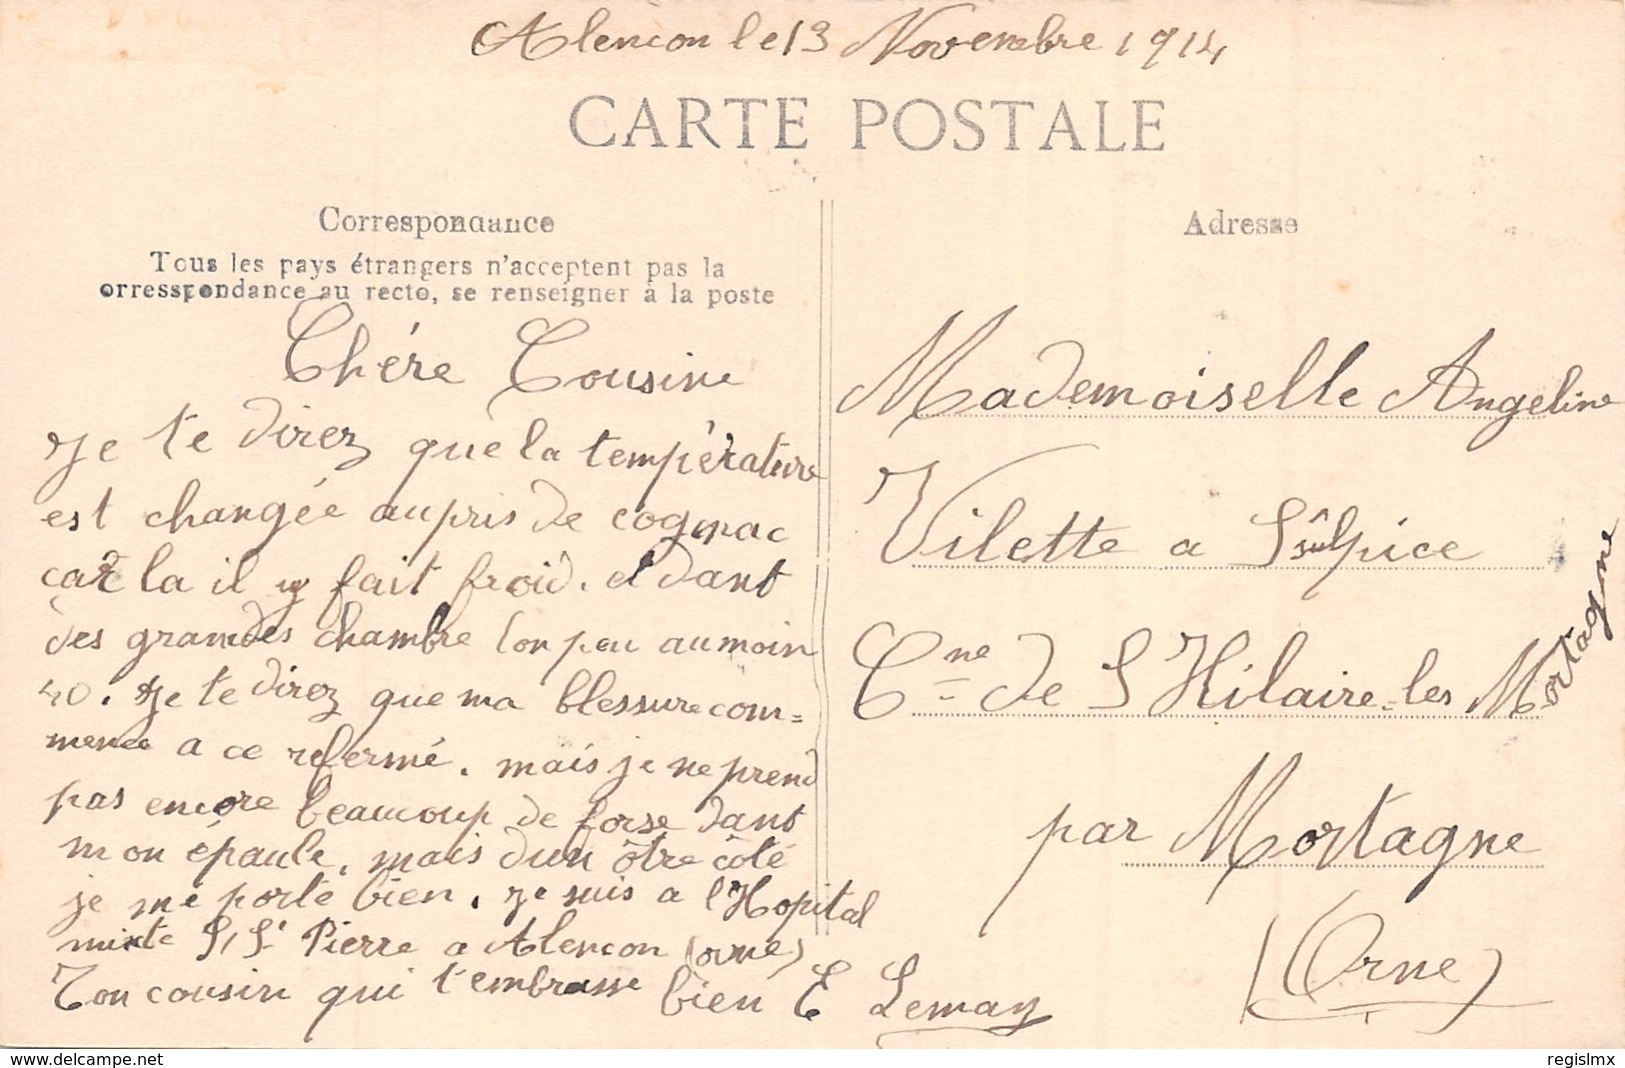 Alencon le 13 Novembre 1914
CARTE POSTALE
Correspondance
Tous les pays étrangers n'acceptent pas la
orresspondance au recto, se renseigner à la poste
Chére Cousine
Je te direz que la température
est changée aupris de cognac
car la il y fait froid. et dant
des grandes chambre lon peu au moin
40. Je te direz que ma blessure com=
mence a ce refermé. mais je ne prend
pas encore beaucoup de forse dant
mon épaule, mais dun ôtre côté
je me porte bien. je suis a l'Hopital
mixte St Pierre a Alencon (orne)
Ton cousin qui t'embrasse bien E Lemay
Adresse
Mademoiselle Angeline
Vilette a S sûlpice
Cne de S Hilaire=les Mortagne
par Mortagne
(Orne)
regislmx